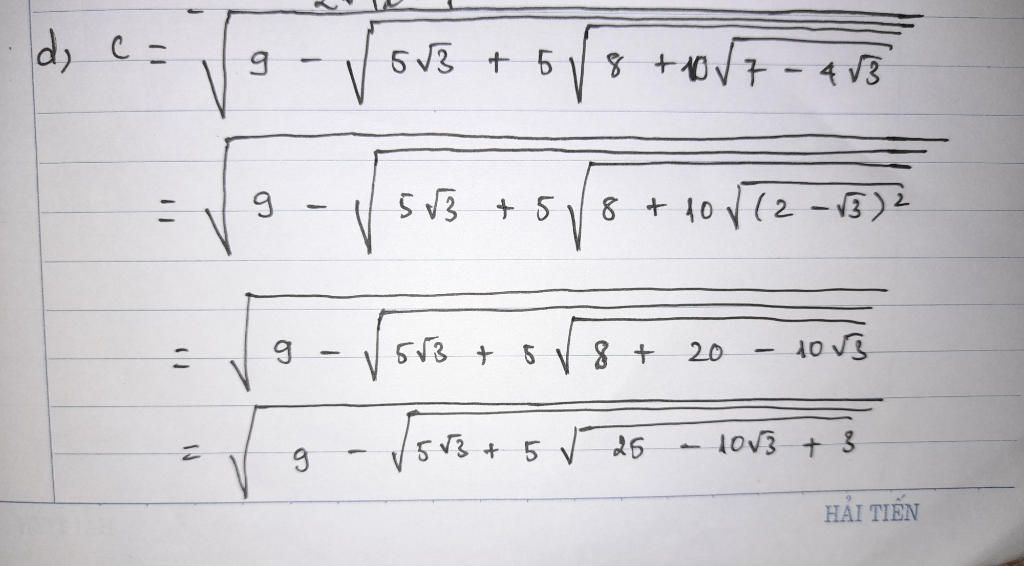 d, C = √(9 - √(5√3 + 5√(8 + 10√(7 - 4√3))))
= √(9 - √(5√3 + 5√(8 + 10√((2 - √3)²))))
= √(9 - √(5√3 + 5√(8 + 20 - 10√3)))
= √(9 - √(5√3 + 5√(25 - 10√3 + 3)))
HẢI TIẾN